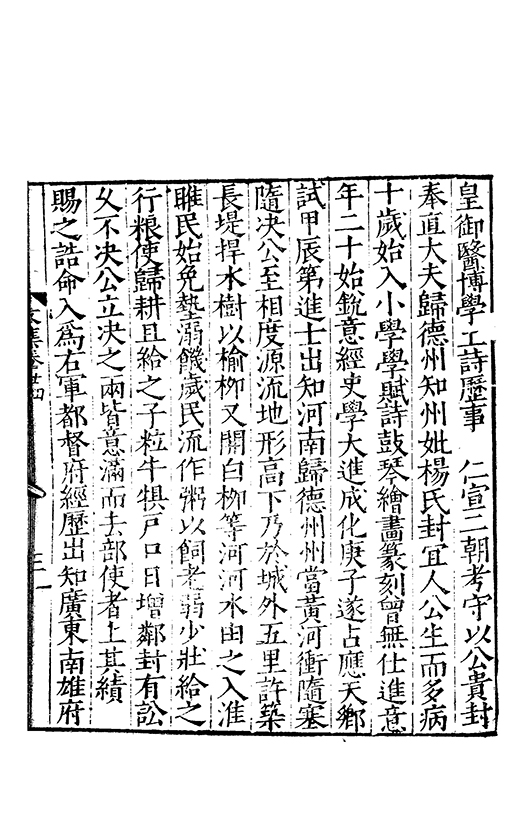 皇御醫博學工詩歷事　仁宣二朝考守以公貴封
奉直大夫歸德州知州妣楊氏封宜人公生而多病
十歲始入小學學賦詩鼓琴繪畫篆刻曾無仕進意
年二十始銳意經史學大進成化庚子遂占應天鄉
試甲辰第進士出知河南歸德州州當黃河衝隨塞
隨决公至相度源流地形高下乃於城外五里許築
長堤捍水樹以榆柳又開白柳等河河水由之入淮
睢民始免墊溺饑歲民流作粥以飼老弱少壯給之
行粮使歸耕且給之子粒牛犋戶口日增鄰封有訟
久不决公立决之兩皆意滿而去部使者上其績
賜之誥命入爲右軍都督府經歷出知廣東南雄府
文集卷廿四
三